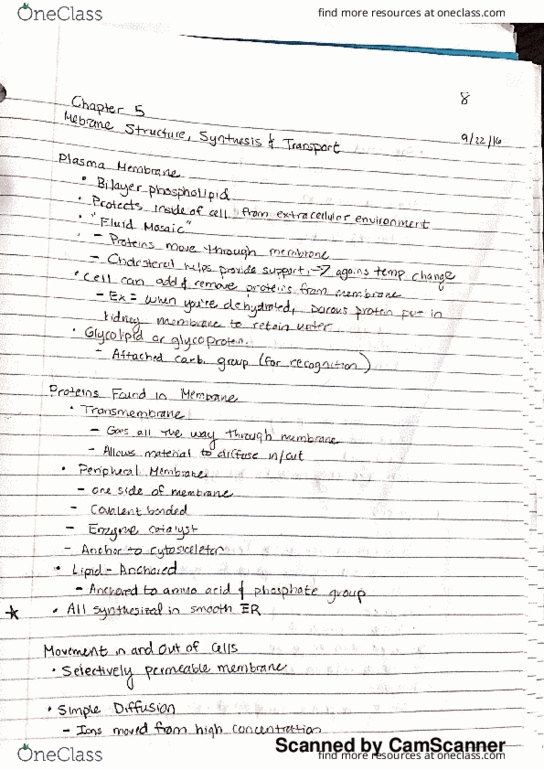 OneClass
find more resources at oneclass.com
8
Chapter 5
Mebrane Structure, Synthesis & Transport
9/22/16
Plasma Membrane
• Bilayer phospholipid
• Protects inside of cell from extracellular environment
• "Fluid Mosaic"
- Proteins move through membrane
- Cholesterol helps provide support → agains temp change
• Cell can add & remove proteins from membrane
- Ex = when you're dehydrated, porous protein put in
kidney membrane to retain water
• Glycolipid or glycoprotein
- Attached carb. group (for recognition)
Proteins Found in Membrane
• Transmembrane
- Goes all the way through membrane
- Allows material to diffuse in/out
• Peripheral Membrane
- one side of membrane
- Covalent bonded
- Enzyme catalyst
- Anchor to cytoskeleton
• Lipid-Anchored
- Anchored to amino acid & phosphate group
* • All synthesized in smooth ER
Movement in and out of cells
• Selectively permeable membrane
• Simple Diffusion
- Ions moved from high concentration
Scanned by CamScanner
OneClass
find more resources at oneclass.com